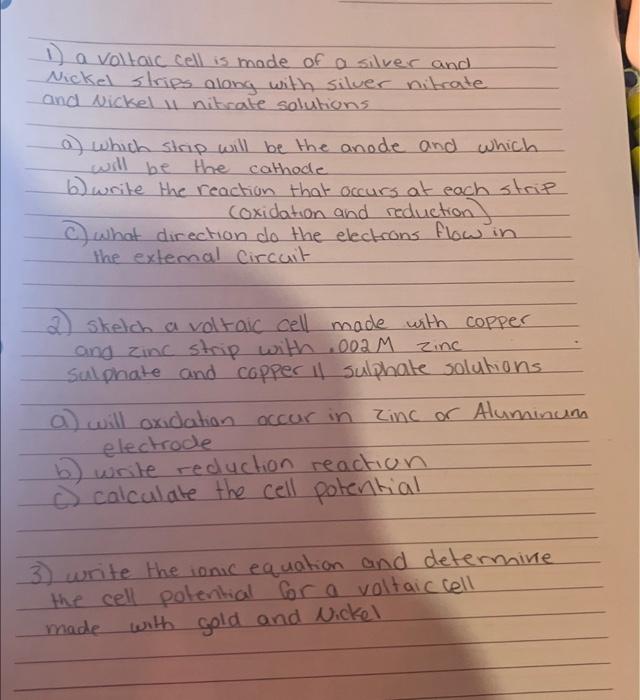 1) a voltaic cell is made of a silver and
Nickel strips along with silver nitrate
and Nickel II nitrate solutions
a) which strip will be the anode and which
will be the cathode
b) write the reaction that occurs at each strip
(oxidation and reduction)
c) what direction do the electrons flow in
the external circuit
2) sketch a voltaic cell made with copper
and zinc strip with .002M zinc
sulphate and copper II sulphate solutions
a) will oxidation occur in zinc or Aluminum
electrode
b) write reduction reaction
c) calculate the cell potential
3) write the ionic equation and determine
the cell potential for a voltaic cell
made with gold and Nickel